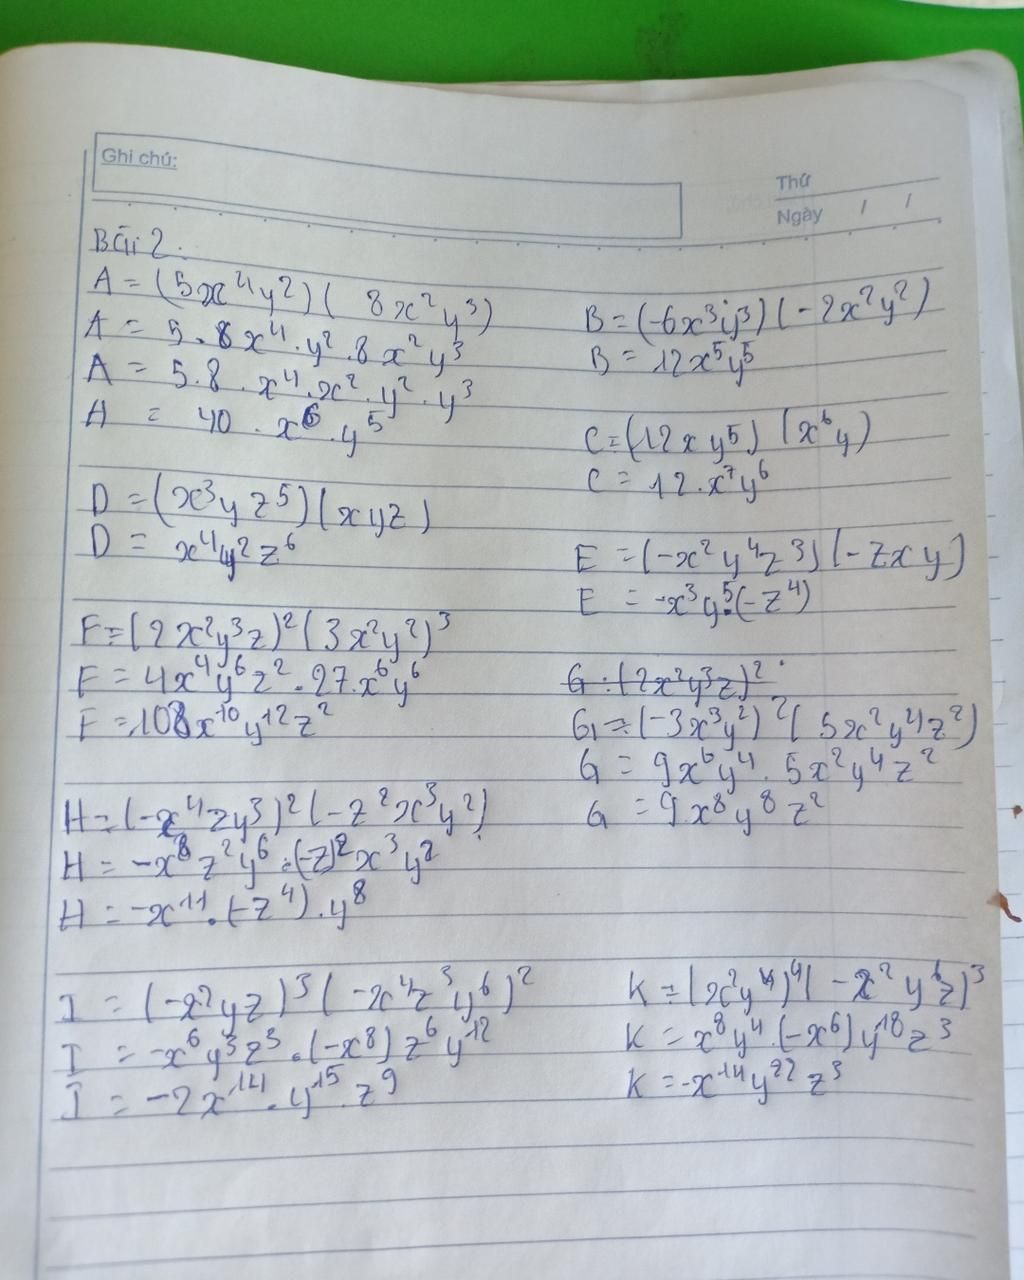 Ghi chú:
Thứ
Ngày / /
Bài 2.
A = (5x⁴y²)( 8x²y³)
A = 5.8x⁴.y².8x²y³
A = 5.8.x⁴.x².y².y³
A = 40.x⁶.y⁵
B = (-6x³y³)(-2x²y²)
B = 12x⁵y⁵
C = (12xy⁵) (x⁶y)
C = 12.x⁷y⁶
D = (x³yz⁵)(xyz)
D = x⁴y²z⁶
E = (-x²y⁴z³)(-zxy)
E = -x³y⁵.(-z⁴)
F = (2x²y³z)²(3x²y²)³
F = 4x⁴y⁶z².27.x⁶y⁶
F = 108x¹⁰y¹²z²
G = (2x²y³z)²
G = (-3x³y²)²(5x²y⁴z²)
G = 9x⁶y⁴.5x²y⁴z²
G = 9x⁸y⁸z²
H = (-x⁴zy³)²(-z²x³y²)
H = -x⁸z²y⁶.(-z)²x³y²
H = -x¹¹.(-z⁴).y⁸
I = (-x²yz)³(-x⁴z³y⁶)²
I = -x⁶y³z³.(-x⁸)z⁶y¹²
I = -2x¹⁴.y¹⁵.z⁹
K = (x²y⁴)⁴(-x²y⁶z)³
K = x⁸y⁴.(-x⁶)y¹⁸z³
K = -x¹⁴y²²z³